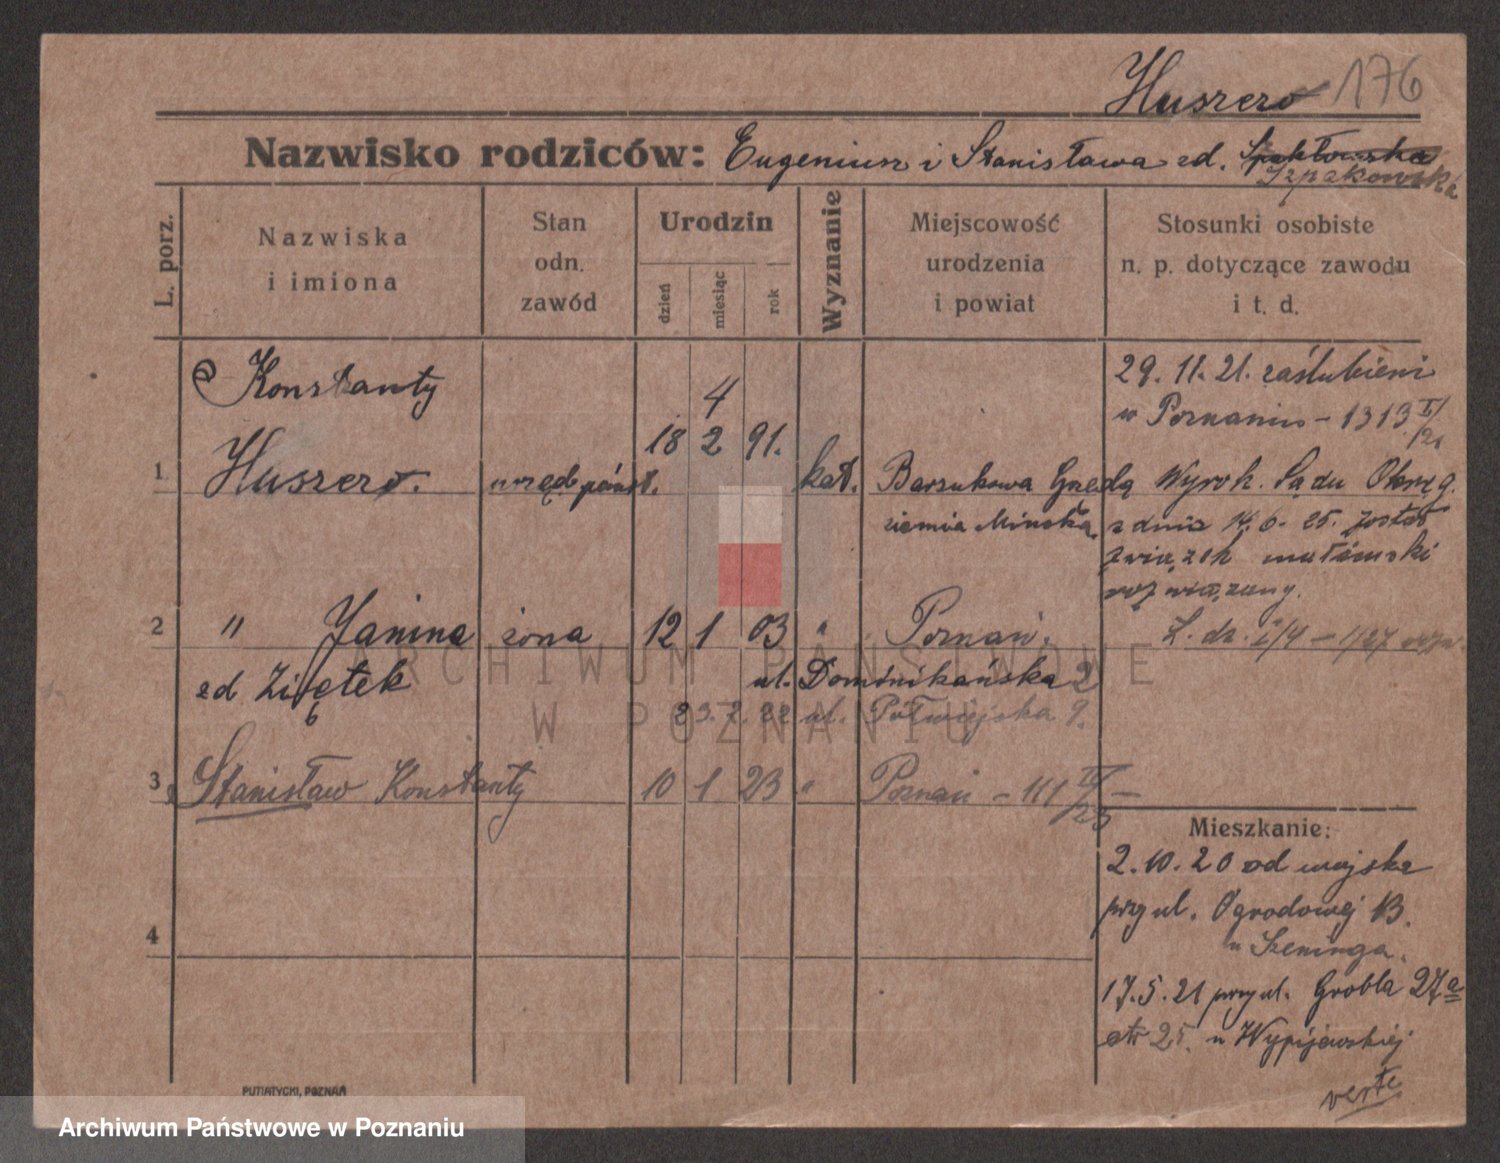 Huszero 176
Nazwisko rodziców: Eugeniusz i Stanisława zd. Szpakowska
L. porz.
Nazwiska
i imiona
Stan
odn.
zawód
Urodzin
dzień
miesiąc
rok
Wyznanie
Miejscowość
urodzenia
i powiat
Stosunki osobiste
n. p. dotyczące zawodu
i t. d.
Konstanty
1 Huszero. urzęd. państ. 18 2 91. kat.
4
Barsukowa Grzędą
ziemia Mińska.
29. 11. 21. zaślubieni
w Poznaniu - 1313 /21
Wyrok. Sądu Okręg.
z dnia 14. 6. 25. został
związek małżeński
rozwiązany.
2 " Janina żona 12 1 03 " Poznań.
zd Ziętek ul. Dominikańska 2
23. 2. 22 ul. Półwiejska 9.
3 Stanisław Konstanty 10 1 23 " Poznań - 111 /23
4
Mieszkanie:
2. 10. 20 od wojska
przy ul. Ogrodowej 13.
u Szeninga.
17. 5. 21 przy ul. Grobla 27a
u Wypijewskiej
verte
PUTIATYCKI, POZNAŃ
ARCHIWUM PAŃSTWOWE
W POZNANIU
Archiwum Państwowe w Poznaniu